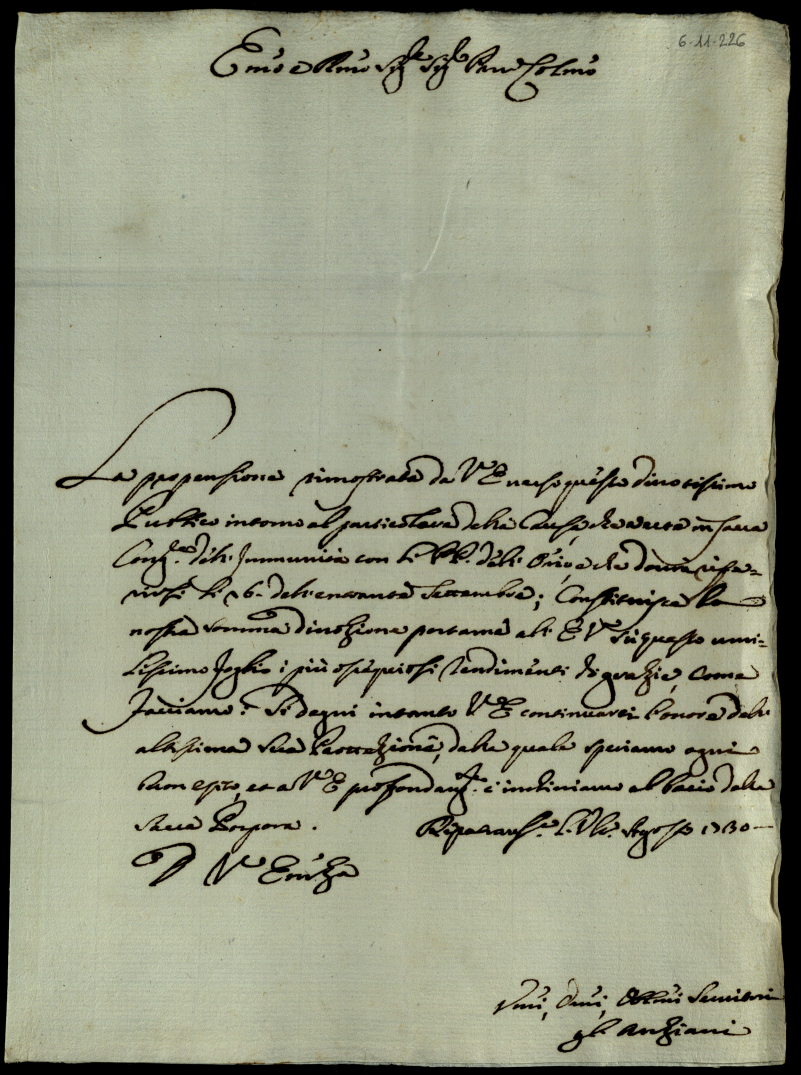 6-11-226
Emo e Rmo Sig.r Sig.r Pron Colmo
La propensione rimostrata da V.a E verso questo divotissimo
Publico intorno al particolare della Causa, che verte in sacra
Cong.ne dell'Immunità con li PP. dell' e che dovrà rifa-
li 26. dell'entrante Settembre; Constituisce la
nostra somma divozione portarne all'E V.a su questo umi-
lissimo foglio i più ossequiosi rendimenti di grazie, come
facciamo: Si degni intanto V.a E continuarci l'onore dell'
altissima Sua Protezione, dalla quale speriamo ogni
buon esito, et a V.a E profondam.te c'inchiniamo al bacio della
Sacra Porpora. Ripatrans.e Agosto 1730
D V.a Emza
Umi, Dmi, Obbmi Servitori
gl'Anziani